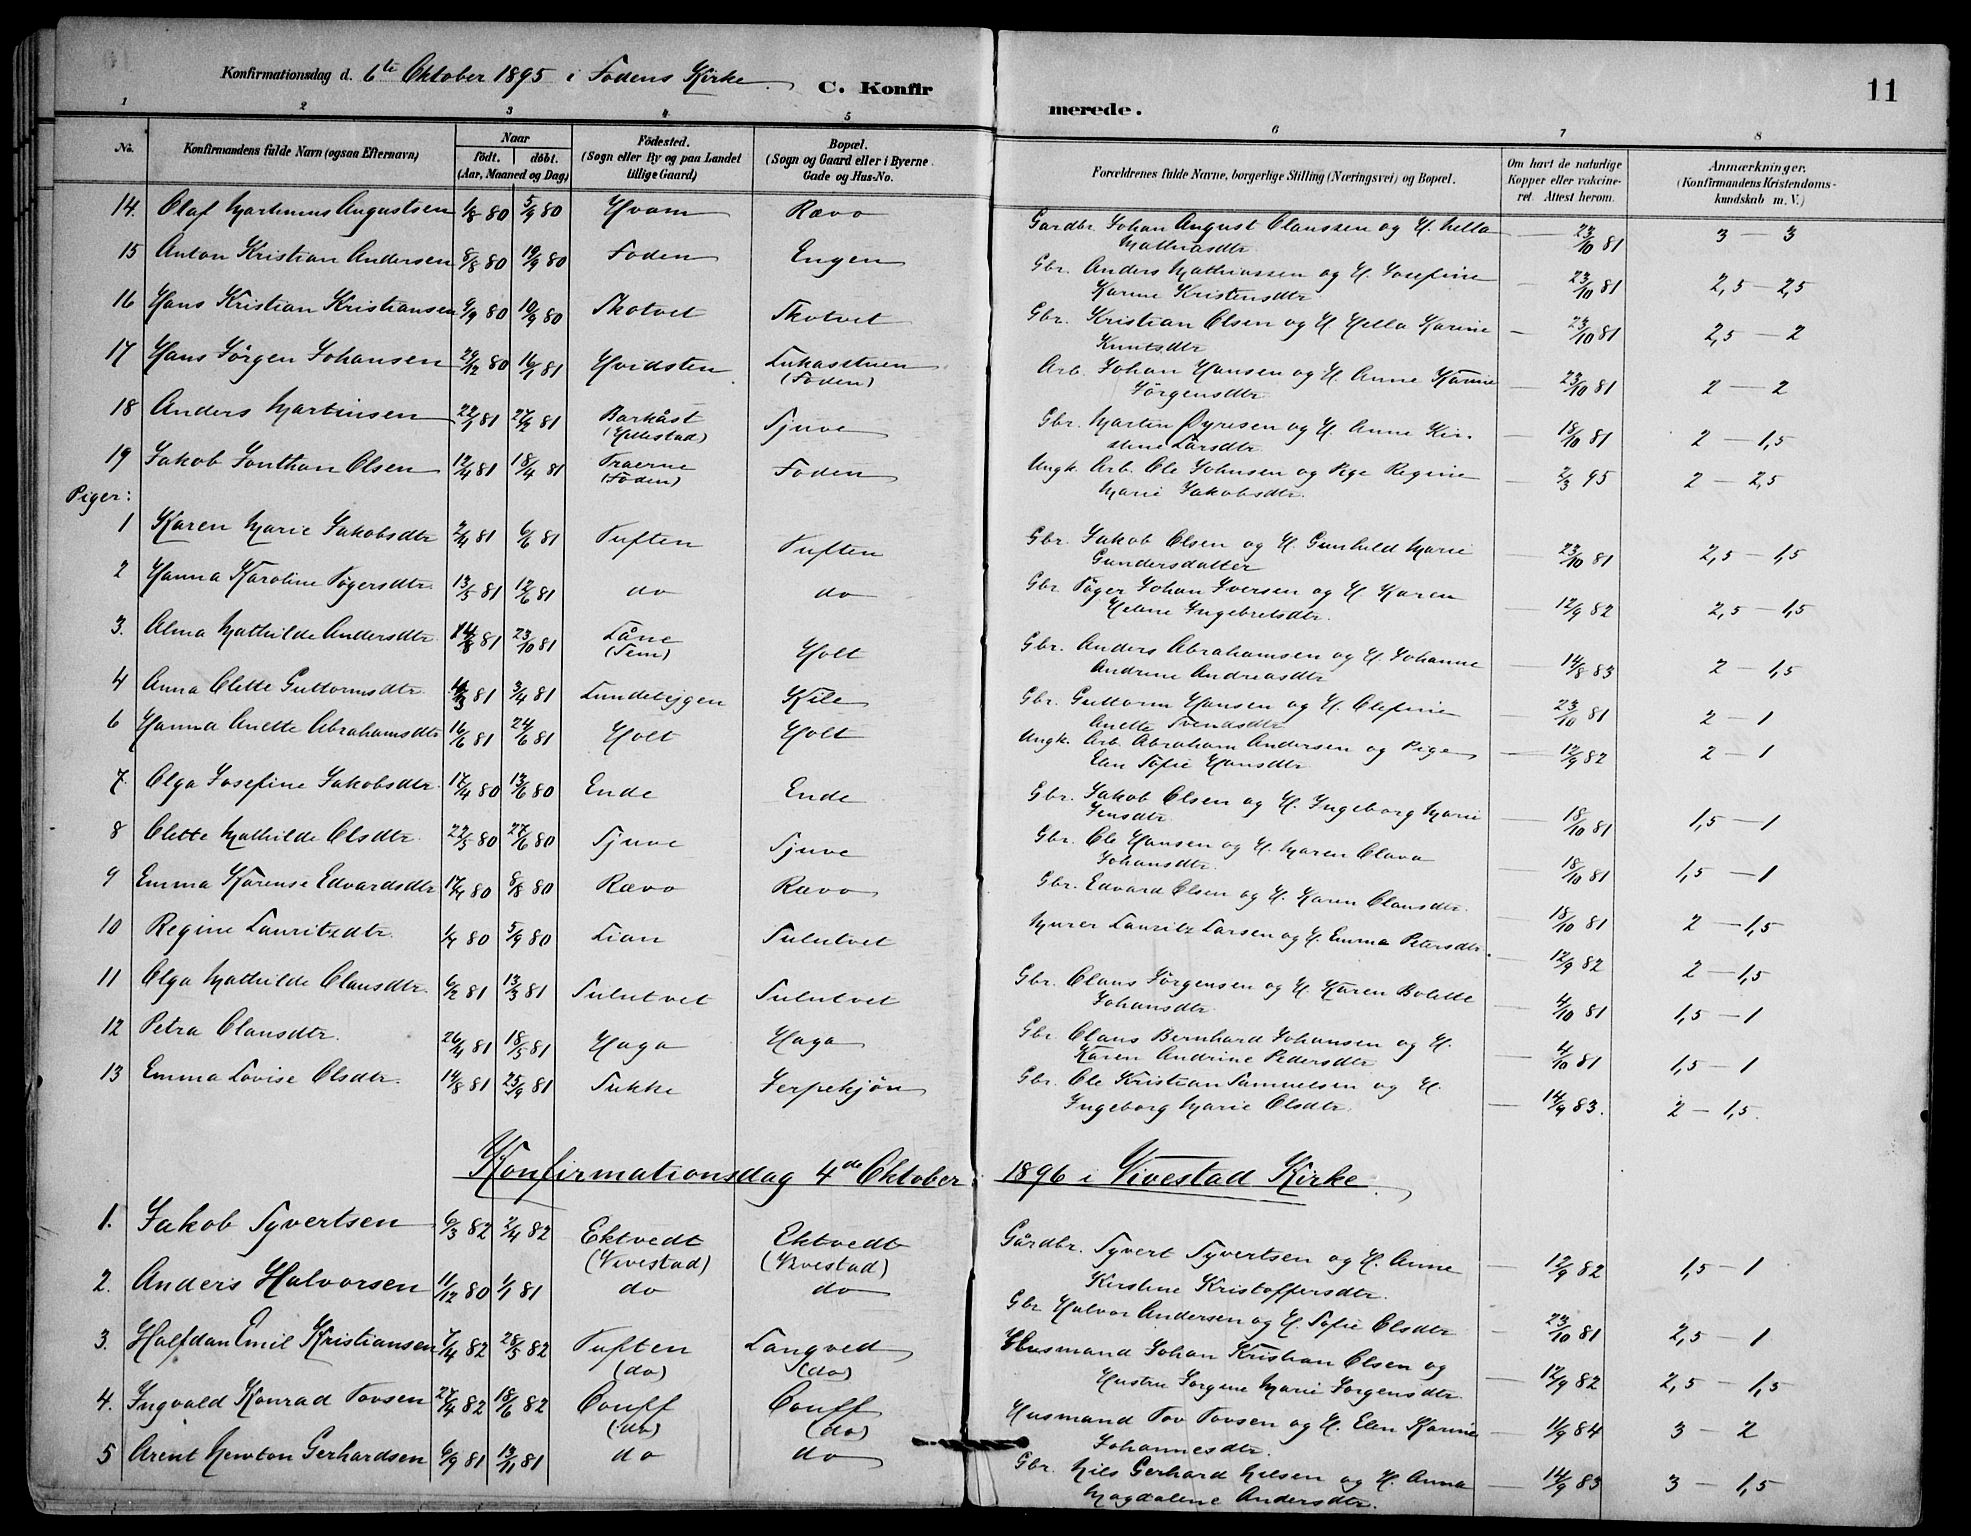 Konfirmationsdag d. 6te Oktober 1895 i Fodens Kirke. C. Konfirmerede. 11
1 2 3 4 5 6 7 8
No. Konfirmandens fulde Navn (ogsaa Efternavn) Naar født. døbt. (Aar, Maaned og Dag) Fødested. (Sogn eller By og paa Landet tillige Gaard) Bopæl. (Sogn og Gaard eller i Byerne Gade og Hus-No. Forældrenes fulde Navne, borgerlige Stilling (Næringsvei) og Bopæl. Om havt de naturlige Kopper eller vakcineret. Attest herom. Anmærkninger. (Konfirmandens Kristendomskundskab m. V.)
14. Olaf Martinius Augustsen 1/8 80 5/9 80 Hvam Rævo Gardbr. Johan August Claussen og H. Mathiasdtr. — 23/10 81 3 — 3
15 Anton Kristian Andersen 8/8 80 19/9 80 Foden Engen Gbr. Anders Mathiassen og H. Josefine Karine Kristensdtr — 23/10 81 2,5 — 2,5
16 Hans Kristian Kristiansen 9/9 80 19/9 80 Skotvet Skotvet Gbr. Kristian Olsen og H Hella Karine Knutsdtr — 23/10 81 2,5 — 2
17 Hans Jörgen Johansen 29/12 80 16/1 81 Hvidsten Lukasstuen (Foden) Arb. Johan Hansen og H. Anne Karine Jörgensdtr — 23/10 81 2 — 2
18 Anders Martinsen 22/1 81 27/2 81 Barkåst (Hillestad) Sjuve Gbr. Martin Dyresen og H. Anne Kirstine Larsdtr — 18/10 81 2 — 1,5
19 Jakob Jonthan Olsen 12/4 81 18/4 81 Traerne (Foden) Foden Ungk. Arb. Ole Johnsen og Pige Regine Marie Jakobsdtr. — 2/3 95 2 — 2,5
Piger:
1 Karen Marie Jakobsdtr 2/4 81 6/6 81 Tuften Tuften Gbr. Jakob Olsen og H. Gunhild Marie Gundersdatter — 23/10 81 2,5 — 1,5
2 Hanna Karoline Tøgersdtr. 13/5 81 12/6 81 do do Gbr. Töger Johan Iversen og H. Karen Helene Ingebretsdtr. — 12/9 82 2,5 — 1,5
3. Alma Mathilde Andersdtr. 14/8 81 23/10 81 Låne (Sem) Holt Gbr. Anders Abrahamsen og H. Johanne Andrine Andreasdtr — 14/8 83 2 — 1,5
4 Anna Olette Guttormsdtr. 81 3/4 81 Lundeteigen Kile Gbr. Guttorm Hansen og H. Olefine Anette Svendsdtr — 23/10 81 2 — 1
6 Hanna Anette Abrahamsdtr 16/6 81 24/6 81 Holt Holt Ungk. Arb. Abraham Andersen og Pige Elen Sofie Hansdtr — 12/9 82 2 — 1
7. Olga Josefine Jakobsdtr. 17/4 80 13/6 80 Ende Ende Gbr. Jakob Olsen og H. Ingeborg Marie Jensdtr. — 18/10 81 1,5 — 1
8 Olette Mathilde Olsdtr. 22/5 80 27/6 80 Sjuve Sjuve Gbr. Ole Hansen og H. Maren Olava Johansdtr. — 18/10 81 1,5 — 1
9 Emma Karense Edvardsdtr 17/4 80 8/8 80 Rævo Rævo Gbr. Edvard Olsen og H. Karen Olausdtr. — 18/10 81 2 — 1,5
10 Regine Lauritzdtr. 1/7 80 5/9 80 Lian Sulutvet Murer Lauritz Larsen og H. Emma Petersdtr. — 12/9 82 2 — 1,5
11 Olga Mathilde Clausdtr. 6/2 81 13/3 81 Sulutvet Sulutvet Gbr. Claus Jörgensen og H. Karen Bolette Johansdtr. — 4/10 81 1,5 — 1
12 Petra Clausdtr. 26/4 81 18/5 81 Haga Haga Gbr. Claus Bernhard Johansen og H. Karen Andrine Pedersdtr — 4/10 81 1,5 — 1
13 Emma Lovise Olsdtr. 14/8 81 25/9 81 Sukke Jerpekjøn Gbr. Ole Kristian Samuelsen og H. Ingeborg Marie Olsdtr. — 14/9 83. 2 — 1,5.
Konfirmationsdag 4de Oktober 1896 i Vivestad Kirke.
1. Jakob Syvertsen 6/3 82 2/4 82 Ektvedt (Vivestad) Ektvedt (Vivestad) Gårdbr. Syvert Syvertsen og H. Anne Kirstine Kristoffersdtr. — 12/9 82 1,5 — 1
2. Anders Halvorsen 11/12 80 1/1 81 do do Gbr Halvor Andersen og H. Sofie Olsdtr — 23/10 81 2,5 — 1
3. Halfdan Emil Kristiansen 7/4 82 28/5 82 Tuften (do) Langved (do) Husmand Johan Kristian Olsen og Hustru Jorgene Marie Jorgensdtr. — 12/9 82 2,5 — 1,5
4. Ingvald Konrad Tovsen 27/4 82 18/6 82 (do) (do) Husmand Tov Tovsen og H. Elen Karine Johannesdtr. — 11/9 84 3 — 2
5 Arent Newton Gerhardsen 6/9 81 13/11 81 do do Gbr. Nils Gerhard Nilsen og H. Anna Magdalene Andersdtr. — 14/9 83 3 — 1,5